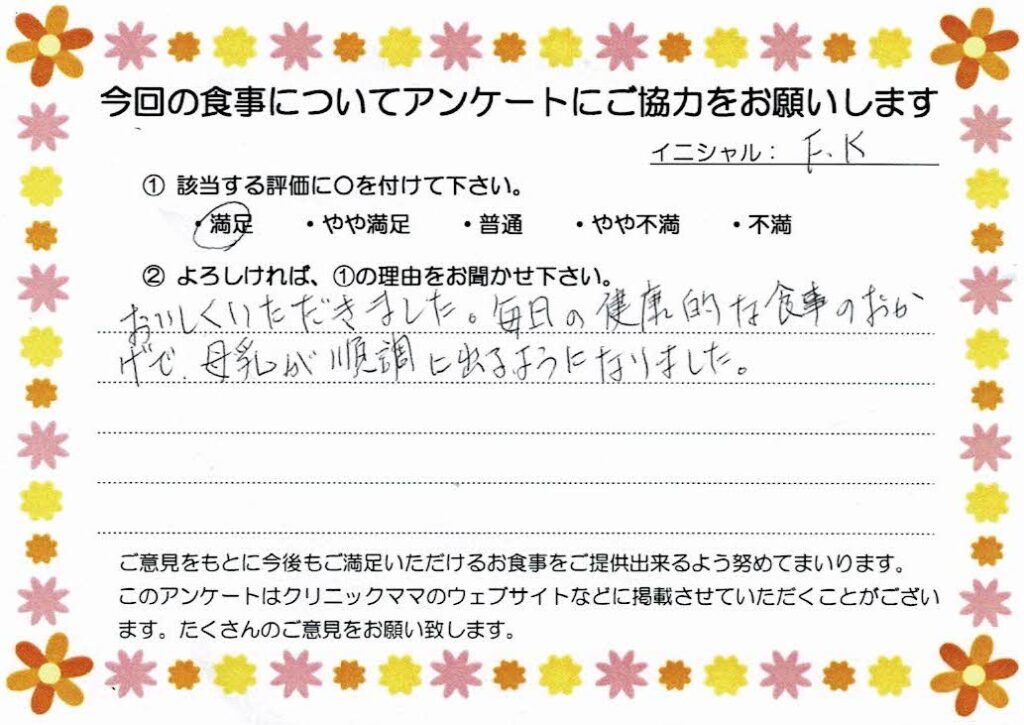 今回の食事についてアンケートにご協力をお願いします
イニシャル： F.K
① 該当する評価に○を付けて下さい。
・満足 ・やや満足 ・普通 ・やや不満 ・不満
② よろしければ、①の理由をお聞かせ下さい。
おいしくいただきました。毎日の健康的な食事のおか
げで、母乳が順調に出るようになりました。
ご意見をもとに今後もご満足いただけるお食事をご提供出来るよう努めてまいります。
このアンケートはクリニックママのウェブサイトなどに掲載させていただくことがござい
ます。たくさんのご意見をお願い致します。